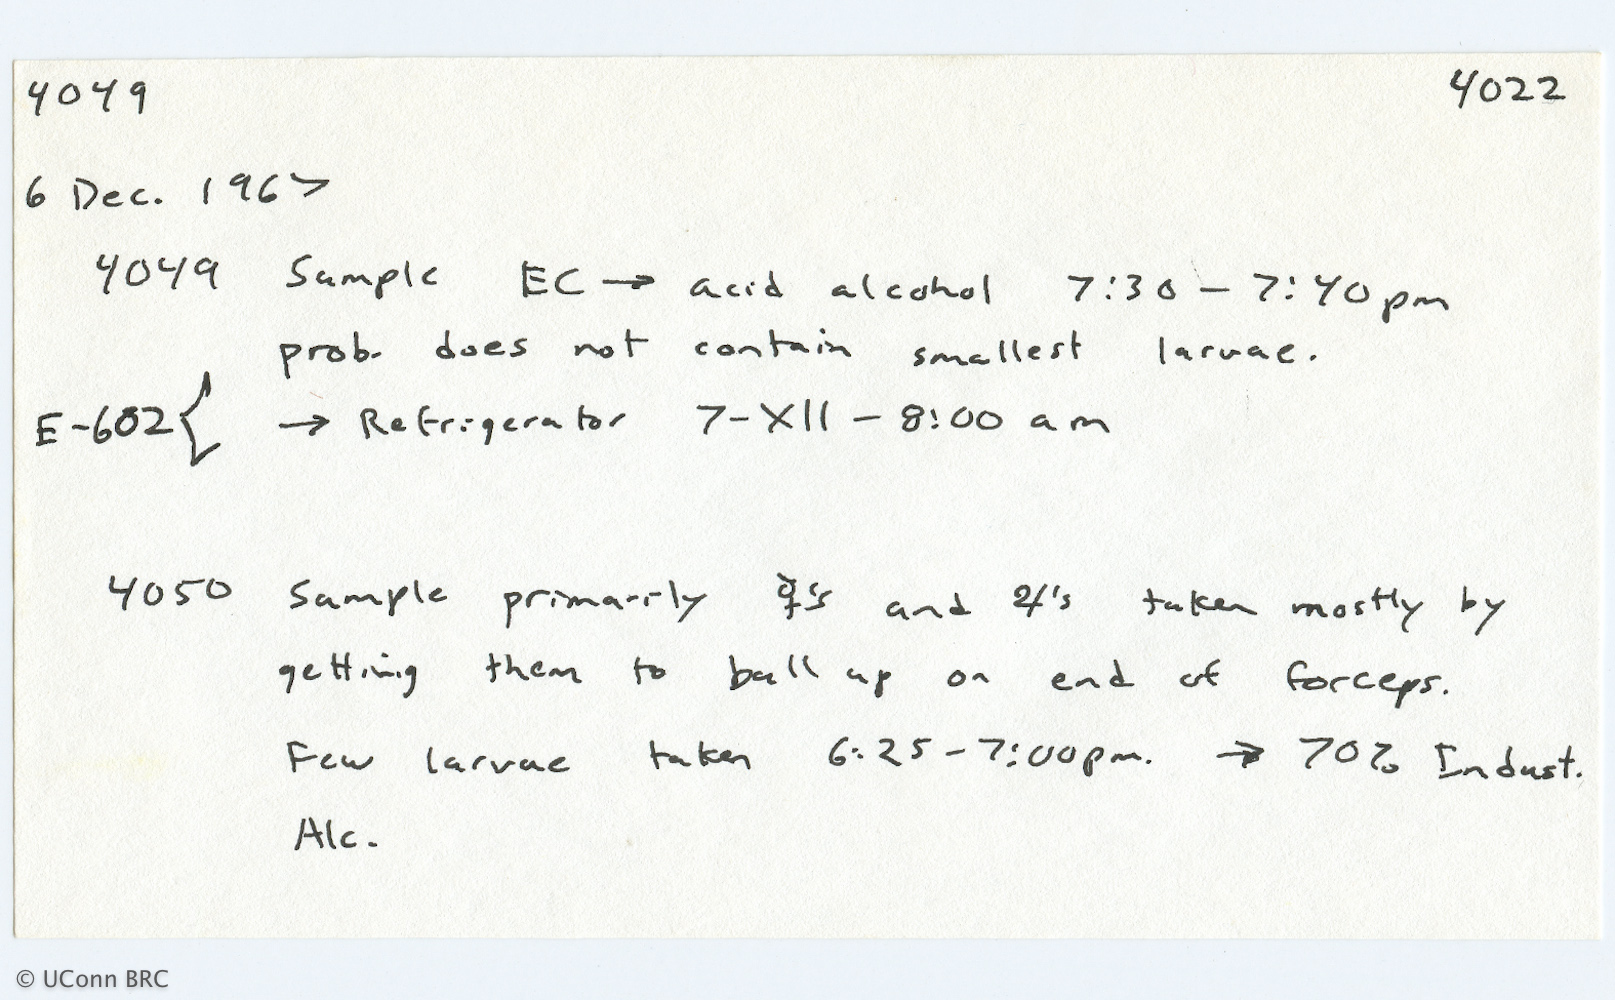 4049 4022
6 Dec. 1967
4049 Sample EC → acid alcohol 7:30 – 7:40 pm
prob. does not contain smallest larvae.
E-602 { → Refrigerator 7-XII – 8:00 am
4050 Sample primarily and taken mostly by
getting them to ball up on end of forceps.
Few larvae taken 6:25-7:00pm. → 70% Indust.
Alc.
© UConn BRC